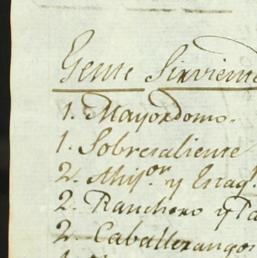 Gente Sirviente
1. Mayordomo.
1. Sobresaliente
2. y
2. Ranchero y
2. Caballerangos